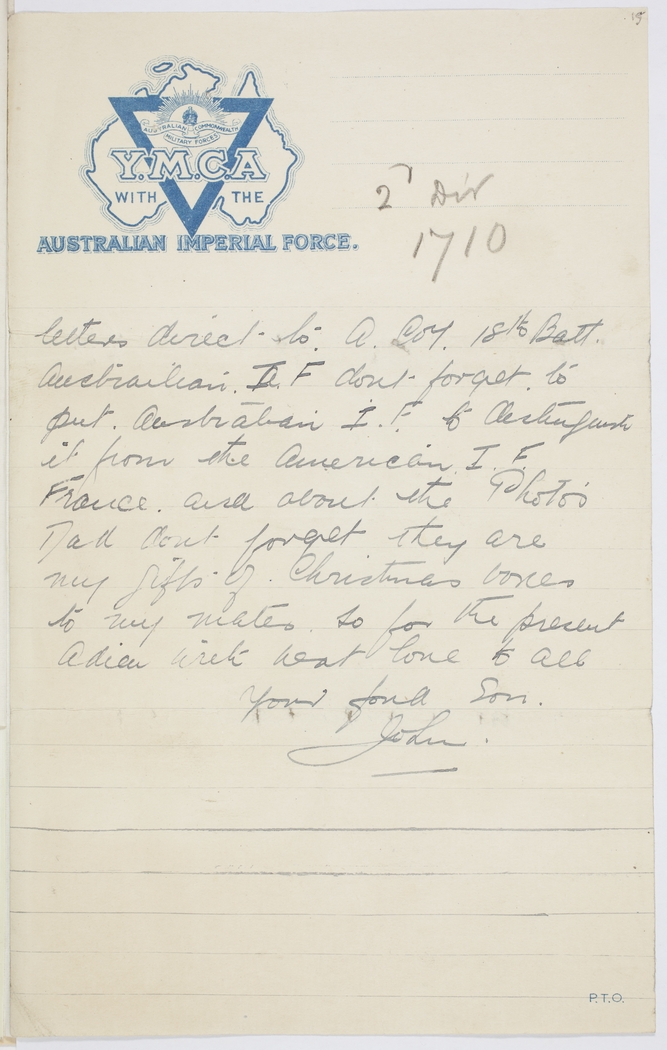 15
AUSTRALIAN COMMONWEALTH
MILITARY FORCES
Y.M.C.A
WITH THE
AUSTRALIAN IMPERIAL FORCE.
2d Div
1710
letters direct to. A. Coy. 18th Batt.
Austrailian. I.F dont forget. to
put. Australian I.F. to destinguish
it from the American. I.F.
France. and about the Photo's
Dad dont forget they are
my gifts of. Christmas boxes
to my mates. so for the present
Adieu with best love to all
Your fond Son.
John.
P.T.O.